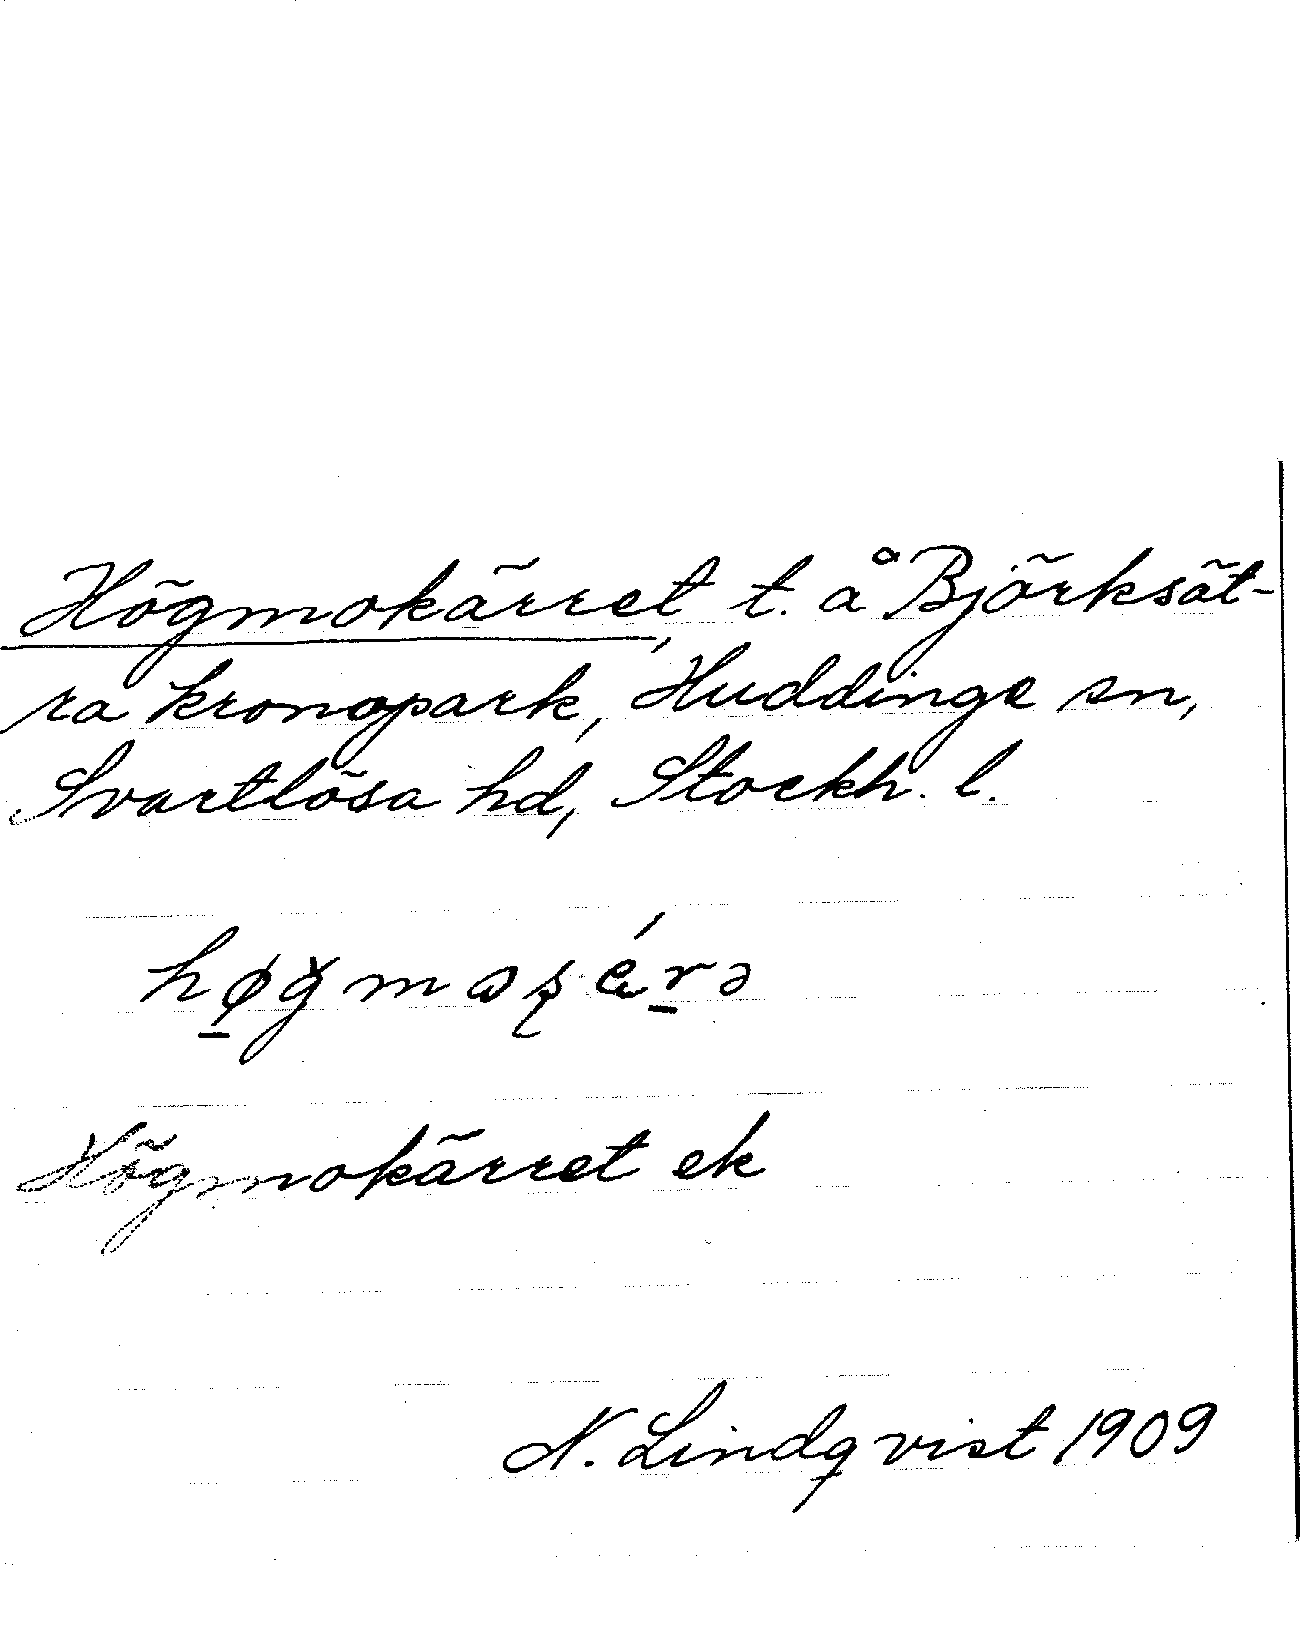 Högmokärret, t. å Björksät-
ra kronopark, Huddinge sn,
Svartlösa hd, Stockh. l.
Högmokärret ek
N. Lindqvist 1909